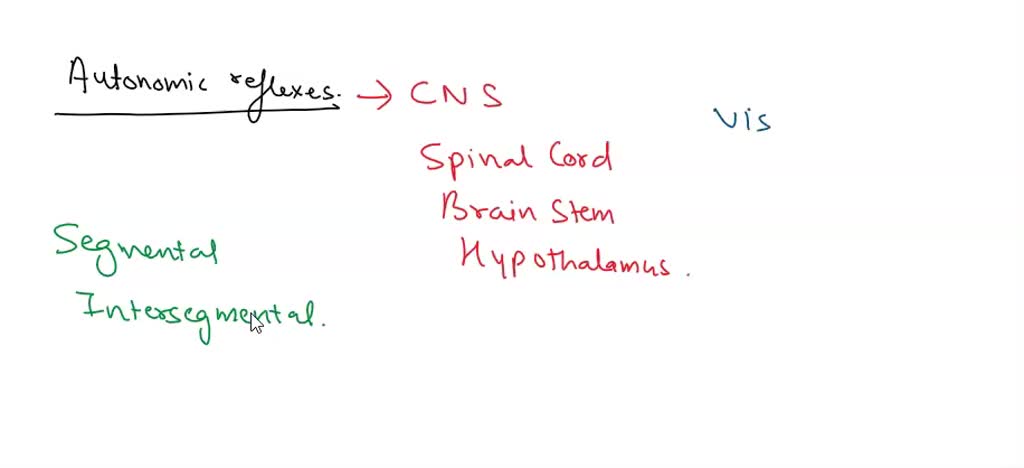 Autonomic reflexes. → CNS
Vis
Spinal Cord
Brain Stem
Segmental
Hypothalamus.
Intersegmental.